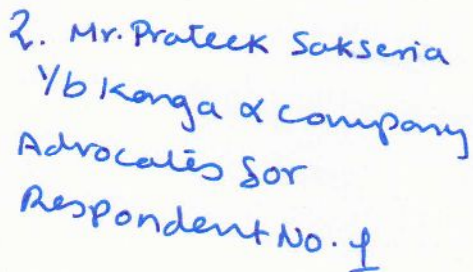 2. Mr. Prateek Sakseria
i/b Kanga & Company
Advocates for
Respondent No. 1